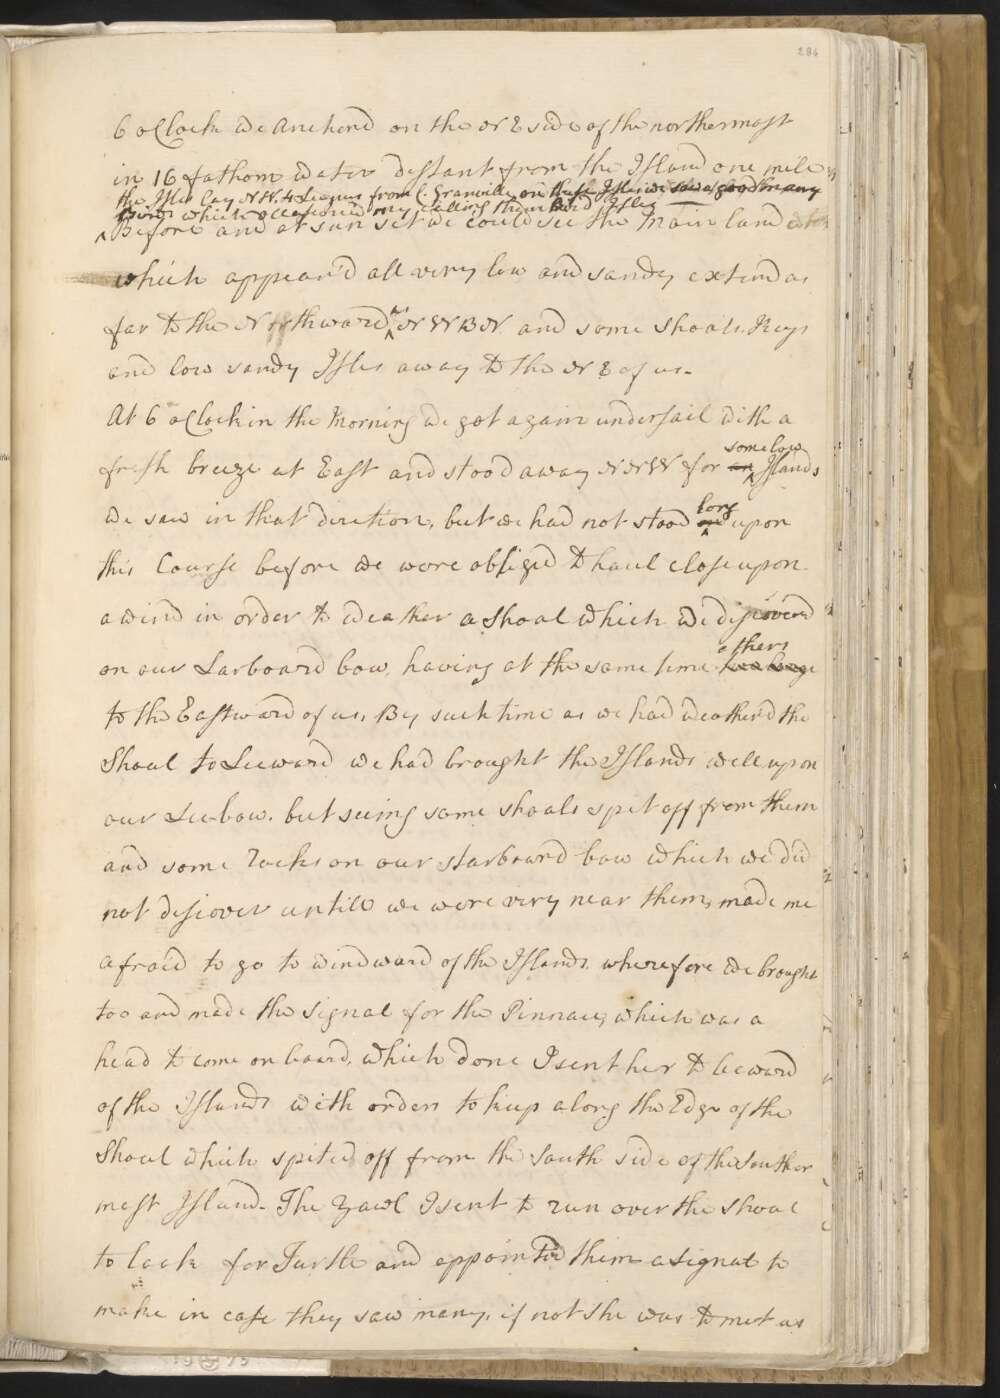 286
6 oClock we Anchord on the NE side of the northermost
in 16 fathom water distant from the Island one mile
the Isles lay NW 4 Leagues from C. Granville, on these Isles we saw a good many
Birds which occasioned my calling them Bird Isles
Before and at sun set we could see the Main land
which appear'd all very low and sandy extend as
far to the Northward as NWBN and some Shoals, Keys
and low sandy Isles away to the NE of us.
At 6 oClock in the Morning we got again under sail with a
some low
fresh breeze at East and stood away NNW for an Islands
long
we saw in that direction, but we had not stood on upon
this Course before we were obliged to haul close upon
a wind in order to weather a Shoal which we discovered
others
on our Larboard bow, having at the same time
to the Eastward of us. By such time as we had weather'd the
Shoal to Leeward we had brought the Islands well upon
our Lee-bow, but seeing some shoals spit off from them
and some rocks on our starboard bow which we did
not discover untill we were very near them, made me
afraid to go to windward of the Islands, wherefore we brought
too and made the signal for the Pinnace, which was a
head to come on board, which done I sent her to leeward
of the Islands with orders to keep along the Edge of the
Shoal which spited off from the south side of the Souther
most Island. The Yawl I sent to run over the shoal
to look for Turtle and appointed them a signal to
make in case they saw many, if not she was to meet us